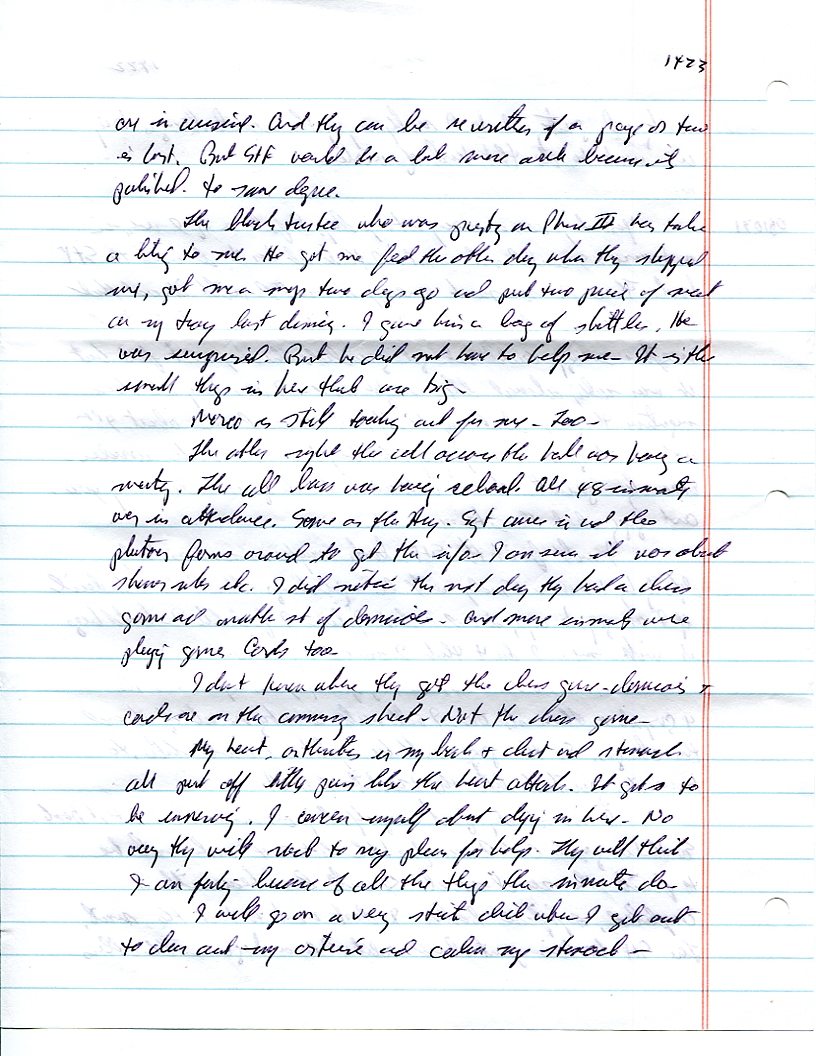 1423
are in unusual. And they can be rewritten if a page or two
is lost. But GTF would be a lot more work because it's
polished. to some degree.
The black trustee who was on Phase III has take
a liking to me. He got me fed the other day when they skipped
me, got me a mop two days ago and put two piece of meat
on my tray last dinner. I gave him a bag of skittles. He
was surprised. But he did not have to help me – It is the
small things in here that are big –
is still looking out for me – Too –
The other night the cell across the hall was having a
meeting. The cell was having school. All 48 inmates
were in attendance. Same as the Sgt came in and then
platoon forms around to get the info. I am sure it was about
shower rules etc. I did notice the next day they had a chess
game and another set of dominoes – and more inmates were
playing games Cards too –
I don't know where they got the chess game – dominoes +
cards are on the commissary sheet – Not the chess game –
My heart, arthritis in my back + chest and stomach
all put off little pains like the heart attack. It gets to
be unnerving. I concern myself about dying in here – No
way they will react to my pleas for help. They will think
I am faking because of all the things the inmates do –
I will go on a very strict diet when I get out
to clean out my arteries and calm my stomach –